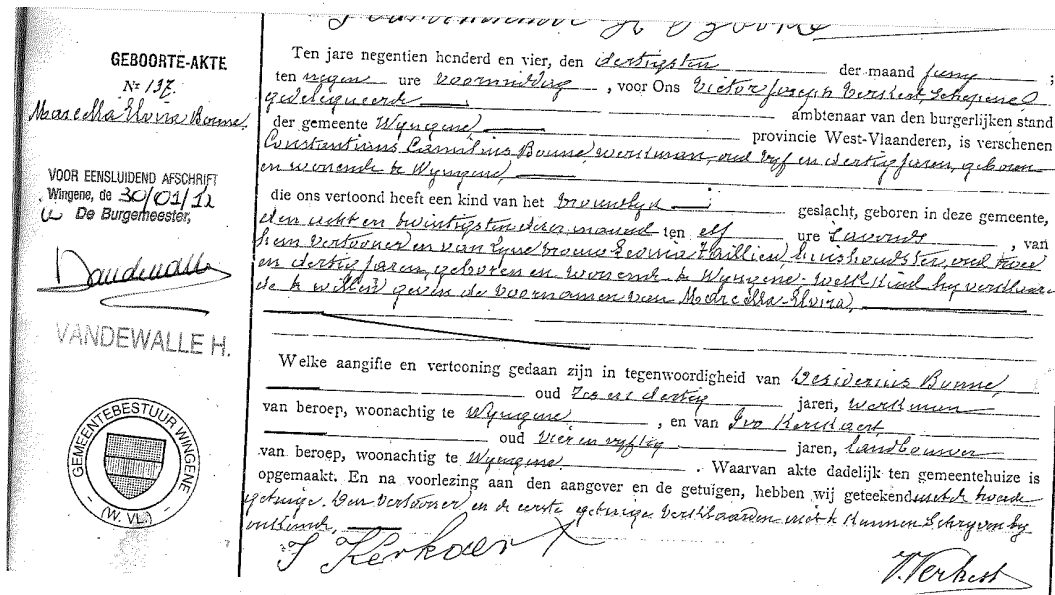 GEBOORTE-AKTE
Nr 137.
Marcella Elvira Bonne.
VOOR EENSLUIDEND AFSCHRIFT
Wingene, de 30/01/12
De Burgemeester,
VANDEWALLE H.
GEMEENTEBESTUUR WINGENE
(W. VL.)
Ten jare negentien honderd en vier, den dertigsten der maand juny ;
ten negen ure voormiddag, voor Ons Victor Joseph Verkest, Schepene
gedelegueerde ambtenaar van den burgerlijken stand
der gemeente Wyngene, provincie West-Vlaanderen, is verschenen
Constantinus Camilius Bonne, werkman, oud vyf en dertig jaren, geboren
en wonende te Wyngene,
die ons vertoond heeft een kind van het vrouwlyk geslacht, geboren in deze gemeente,
den acht en twintigsten dezer maand ten elf ure 's avonds , van
hem vertooner en van zyne vrouw Leonia Thillien, huishoudster, oud twee
en dertig jaren, geboren en wonende te Wyngene, welk kind hy verklaar-
de te willen geven de voornamen van Marcella-Elvira,
Welke aangifte en vertooning gedaan zijn in tegenwoordigheid van Desiderius Bonne,
oud zes en dertig jaren, werkman
van beroep, woonachtig te Wyngene , en van Ivo Kerckaert,
oud vier en vyftig jaren, landbouwer
van beroep, woonachtig te Wyngene. . Waarvan akte dadelijk ten gemeentehuize is
opgemaakt. En na voorlezing aan den aangever en de getuigen, hebben wij geteekend met de tweede
getuige. Den vertooner en de eerste getuige verklaarden niet te kunnen schryven by
onkunde.
V. Verkest